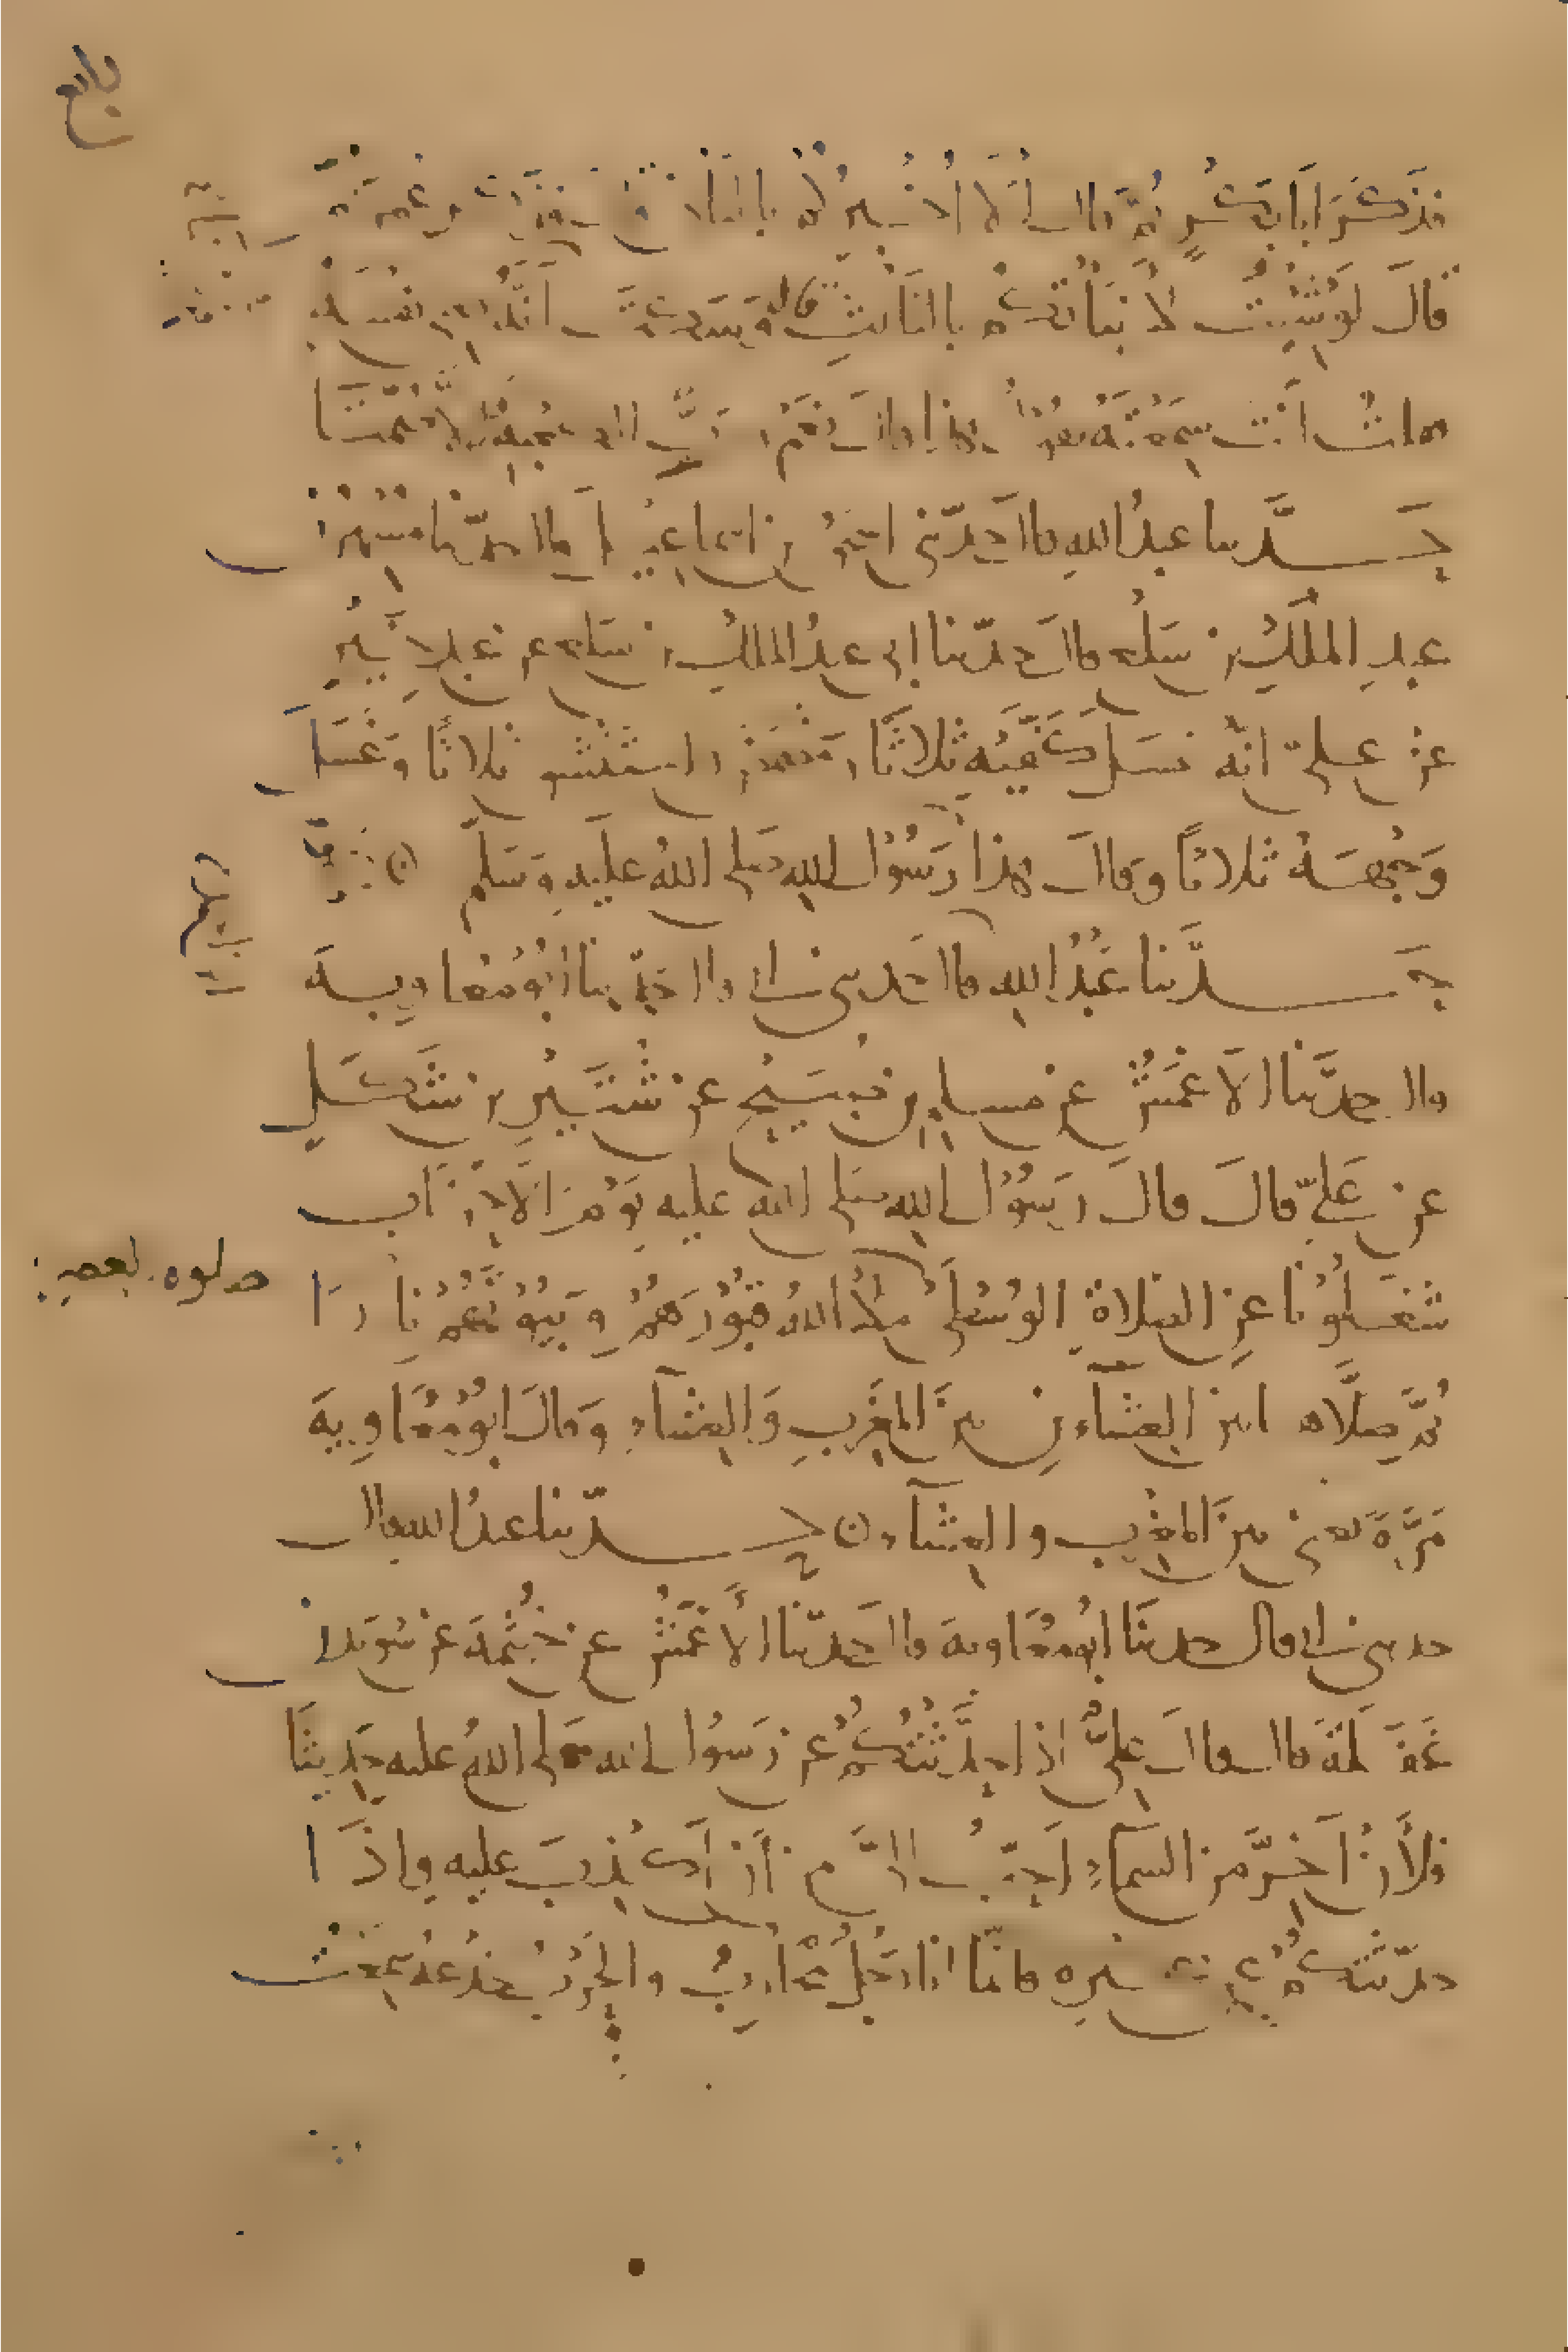 فذكر ابا بكر ثم قال الا اخبركم بالثاني قال فذكر عمر ثم
قال لو شئت لانباتكم بالثالث قال وسكت انه يعني نفسه
فقلت انت سمعته يقول هذا قال نعم ورب الكعبة والا صمتا
حدثنا عبد الله قال حدثني احمد بن قال حدثنا مسهر بن
عبد الملك بن سلع قال حدثنا ابي عبد الملك بن سلع عن عبد خير
عن علي انه غسل كفيه ثلاثا ومضمض واستنشق ثلاثا وغسل
وجهه ثلاثا وقال هذا رسول الله صلى الله عليه وسلم
حدثنا عبد الله قال حدثني ابي قال حدثنا ابو معاوية
قال حدثنا الاعمش عن مسلم بن صبيح عن شتير بن شكل
عن علي قال قال رسول الله صلى الله عليه يوم الاحزاب
شغلونا عن الصلاة الوسطى ملا الله قبورهم وبيوتهم نارا
ثم صلاها بين العشاءين بين المغرب والعشاء وقال ابو معاوية
مرة يعني بين المغرب والعشاء حدثنا عبد الله قال
حدثني ابي قال حدثنا ابو معاوية قال حدثنا الاعمش عن خيثمة عن سويد بن
غفلة قال قال علي اذا حدثتكم عن رسول الله صلى الله عليه حديثا
فلأن أخر من السماء احب الي من أن أكذب عليه واذا
حدثتكم عن غيره فانما انا رجل محارب والحرب خدعة سمعت